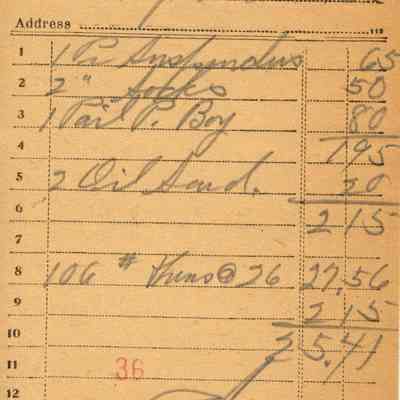 Address
1 1 Pr Suspenders 65
2 2 " Socks 50
3 1 Pail P. Boy 80
4 195
5 2 Oil Sard. 20
6 215
7
8 106 # Hens @ 26 27.56
9 2 15
10 25.41
11 36
12